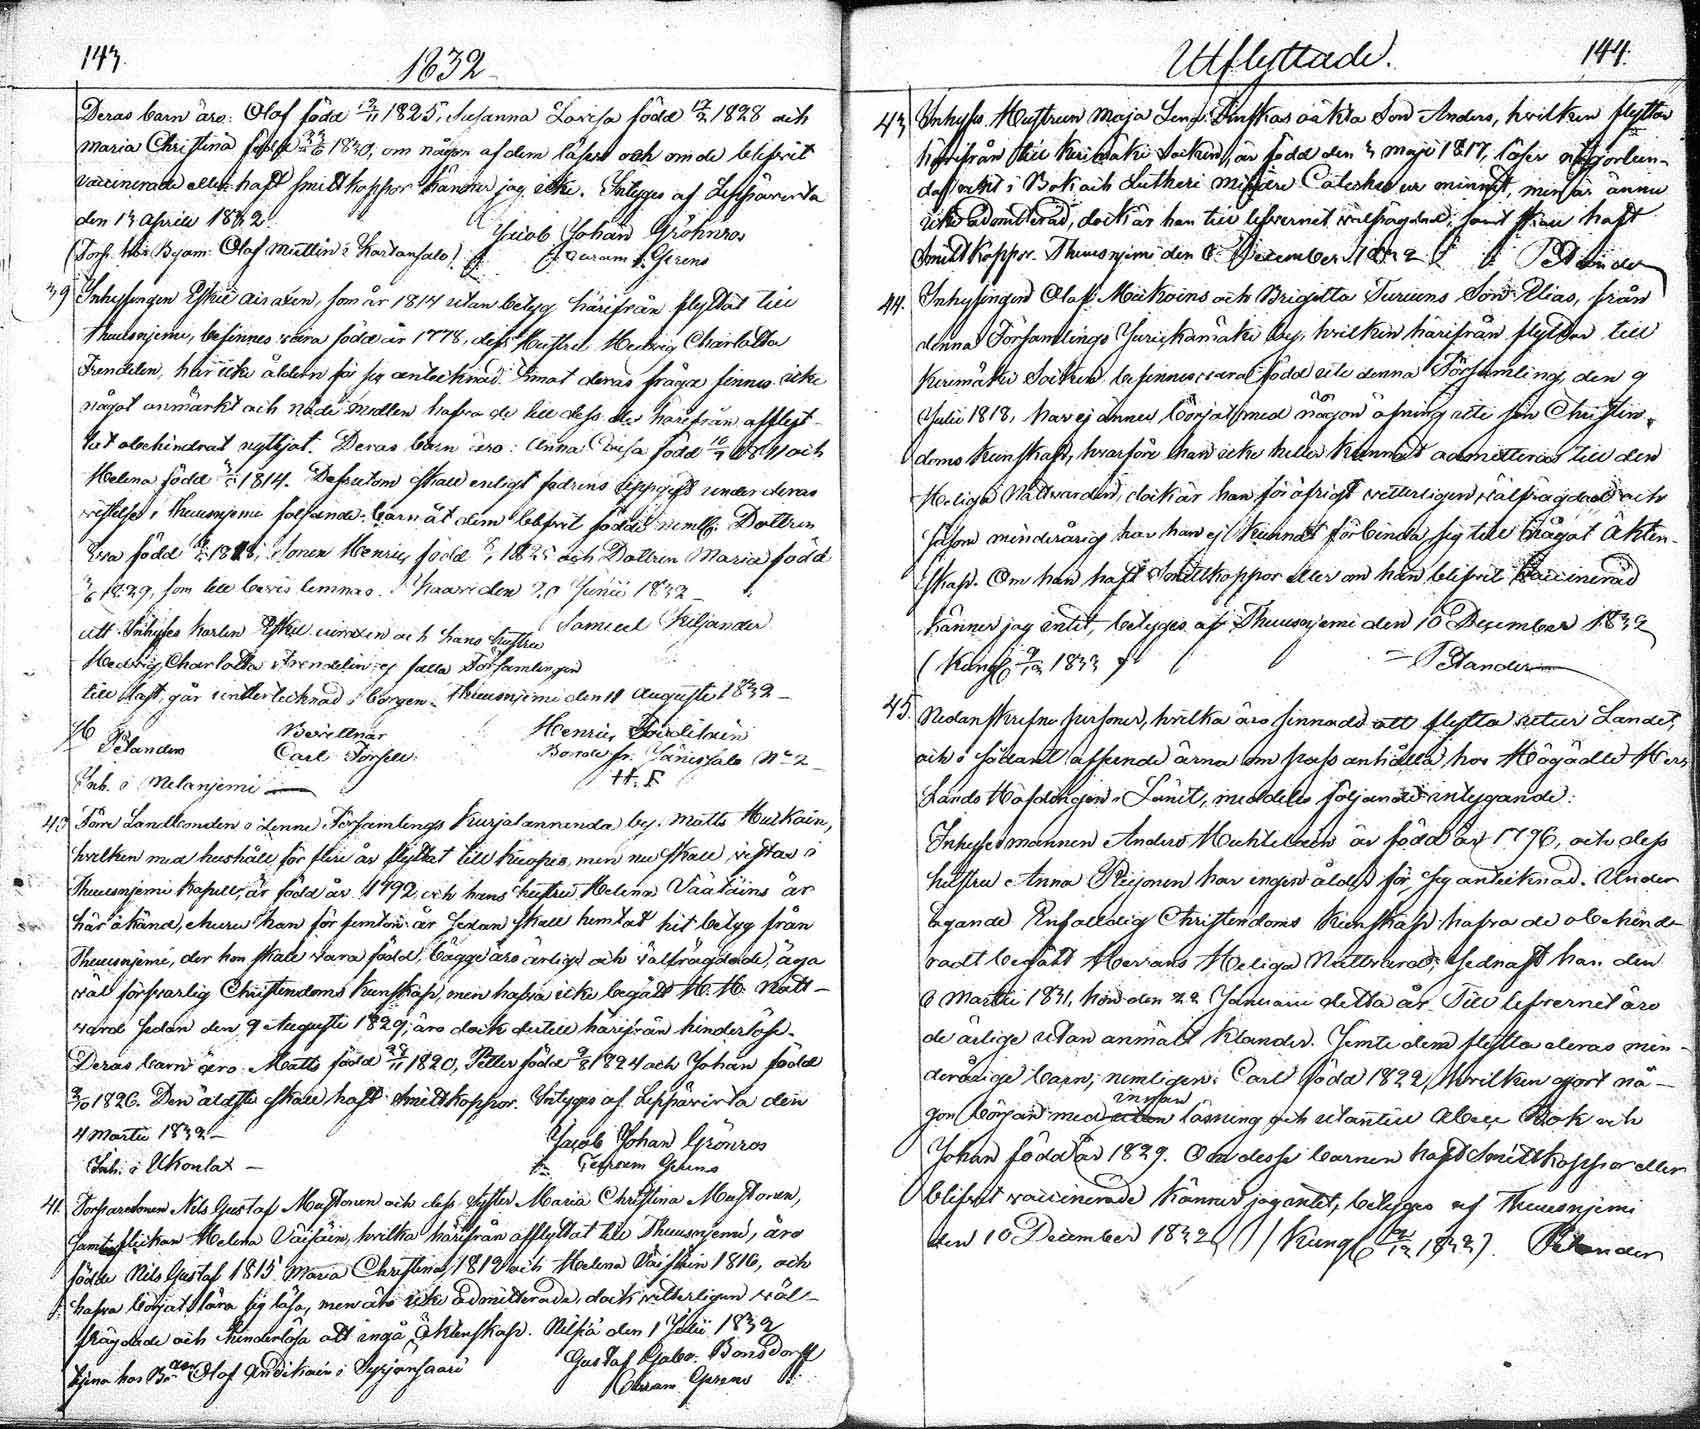 143.
1832
Deras barn äro: Olof född 2/11 1825, Susanna Lovisa född 17/2 1828 och
Maria Christina född 1830, om någon af dem läser och om de blifvit
vaccinerade eller haft smittkoppor känner jag icke. Intygas af Leppävirta
den 13 April 1832.
Jacob Johan Gröhnros
(Torp. hos Bejam. Olof Miettin i Hartansalo)
39 Inhysingen Eskil som år 1814 utan betyg härifrån flyttat till
Thuusnjemi, befinnes vara född år 1778, dess Hustru Hedvig Charlotta
Frendelin, har icke åldern för sig antecknad. Emot deras frägd finnes icke
något anmärkt och nådemedlen hafva de till dess de härifrån afflyt-
tat obehindrat nyttjat. Deras barn äro: Anna Lovisa född 1811 och
Helena född 1814. Dessutom skall enligt fadrens uppgift under deras
vistelse i Thuusnjemi följande barn åt dem blifvit födde neml. Dottren
Eva född 1818, Sonen Henric född 1825 och Dottren Maria född
1829, som till bevis lemnas. Kaavi den 20 Junii 1832
Samuel Kiljander
att Inhyses karlen Eskil och hans hustru
Hedvig Charlotta Frendelin ej falla Församlingen
till last, går undertecknad i borgen. Thuusnjemi den 11 Augusti 1832
Bevittnar Henric
Pelander Carl Forsell Bonde fr. Jänissalo No 2
H. F
Inh. i Melanjemi
40 Förre Landbonden i denne Församlings Kurjalanranda by. Matts Huikain,
hvilken med hushåll för flere år flyttat till Kuopio, men nu skall vistas i
Thuusnjemi Kapell, är född år 1792 och hans hustru Helena Väätäins är
här okänd, churu han för femton år sedan skall hemtat hit betyg från
Thuusnjemi, der hon skall vara född, bägge äro ärlige och välfrägdade, äga
väl försvarlig Christendoms kunskap, men hafva icke begått H. H. Natt-
vard sedan den 9 Augusti 1829, äro dock dertill härifrån hinderlöse.
Deras barn äro: Matts född 1820, Petter född 9/8 1824 och Johan född
1826. Den äldste skall haft smittkoppor. Intygas af Leppävirta den
4 Martii 1832
Jacob Johan Grönros
Inh. i Ukonlax
41. Torparesonen Nils Gustaf Mustonen och dess Syster Maria Christina Mustonen,
samt flickan Helena Väisäin, hvilka härifrån afflyttat till Thuusnjemi, äro
födde Nils Gustaf 1815 Maria Christina 1812 och Helena Väisäin 1816, och
hafva börjat lära sig läsa, men äro icke admitterade, dock vitterligen väl-
frägdade och hinderlösa att ingå Äktenskap. Nilsiä den 1 Julii 1832
Gustaf Gabr. Bonsdorff
tjena hos Olof i Syrjänsaari
Utflyttade.
144.
43 Inhyses Hustrun Maja Lena oäkta Son Anders, hvilken flyttar
härifrån till Kerimäki Socken, är född den 3 Maji 1817, läser någorlun-
da rent i Bok och Lutheri mindre Cateches ur minnet, men är ännu
icke admitterad, dock är han till lefvernet välfrägdad, samt skall haft
Smittkoppor. Thuusnjemi den 6 December 1832 Pelander
44. Inhysingen Olof Miikoins och Brigitta Turuens Son Elias, från
denna Församlings Jurickamäki by, hvilken härifrån flyttar till
Kerimäki Socken befinnes vara född uti denna Församling, den 9
Julii 1818, har ej ännu börjat med någon öfning uti sin Christen-
doms kunskap, hvarföre han icke heller kunnat admitteras till den
Heliga Nattvarden, dock är han för öfrigt vitterligen välfrägdad och
såsom minderårig har han ej kunnat förbinda sig till något Äkten-
skap. Om han haft Smittkoppor eller om han blifvit Vaccinerad
känner jag intet, betyges af Thuusnjemi den 10 December 1832
(Kungl 1833) Pelander
45. Nedanskrefne personer, hvilka äro sinnade att flytta utur Landet,
och i sådant afseende ärna om pass anhålla hos Högädle Herr
Lands Höfdingen i Länet, meddeles följande intygande:
Inhysesmannen Anders Muhtelvein är född år 1796, och dess
hustru Anna Reijonen har ingen ålder för sig antecknad. Under
ägande Enfalldig Christendoms Kunskap hafva de obehind-
radt begått Herrans Heliga Nattvard, sednast han den
6 Martii 1831, hon den 22 Januarii detta år. Till lefvernet äro
de ärlige utan anmäldt klander. Jemte dem flytta deras min-
deråriga barn, nemligen: Carl född 1822, hvilken gjort nå-
gon början med utan innan läsning och utantill Abece Bok och
Johan född år 1829. Om desse barnen haft Smittkoppor eller
blifvit vaccinerade känner jag intet, betyges af Thuusnjemi
den 10 December 1832 (Kungl 1833). Pelander